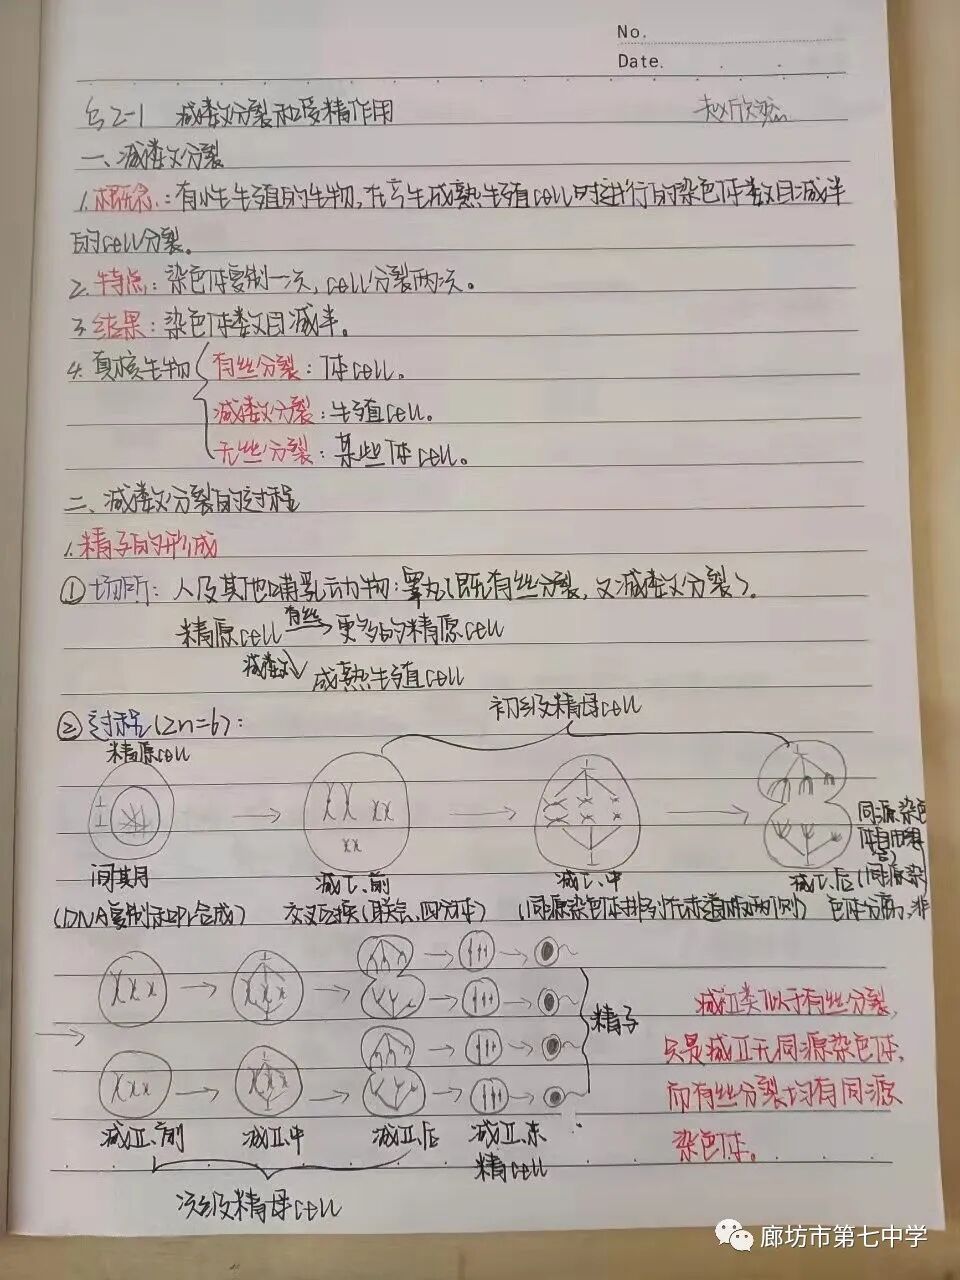 No.
Date.
§2-1 减数分裂和受精作用 赵欣
一、减数分裂
1.概念：有性生殖的生物，在产生成熟生殖cell时进行的染色体数目减半
的cell分裂。
2.特点：染色体复制一次，cell分裂两次。
3.结果：染色体数目减半。
4.真核生物
有丝分裂：体cell。
减数分裂：生殖cell。
无丝分裂：某些体cell。
二、减数分裂的过程
1.精子的形成
①场所：人及其他哺乳动物：睾丸(既有丝分裂，又减数分裂)。
精原cell 有丝→ 更多的精原cell
减数↘ 成熟生殖cell
②过程(2n=6)：
初级精母cell
精原cell
间期 减Ⅰ、前 减Ⅰ、中 减Ⅰ、后(同源染
(DNA复制和Pr合成) 交叉互换(联会、四分体) (同源染色体排列在赤道板两侧) 色体分离、非
同源染色
体自由组
合)
精子
减Ⅱ类似于有丝分裂，
只是减Ⅱ无同源染色体，
而有丝分裂均有同源
染色体。
减Ⅱ、前 减Ⅱ、中 减Ⅱ、后 减Ⅱ、末
精cell
次级精母cell
廊坊市第七中学